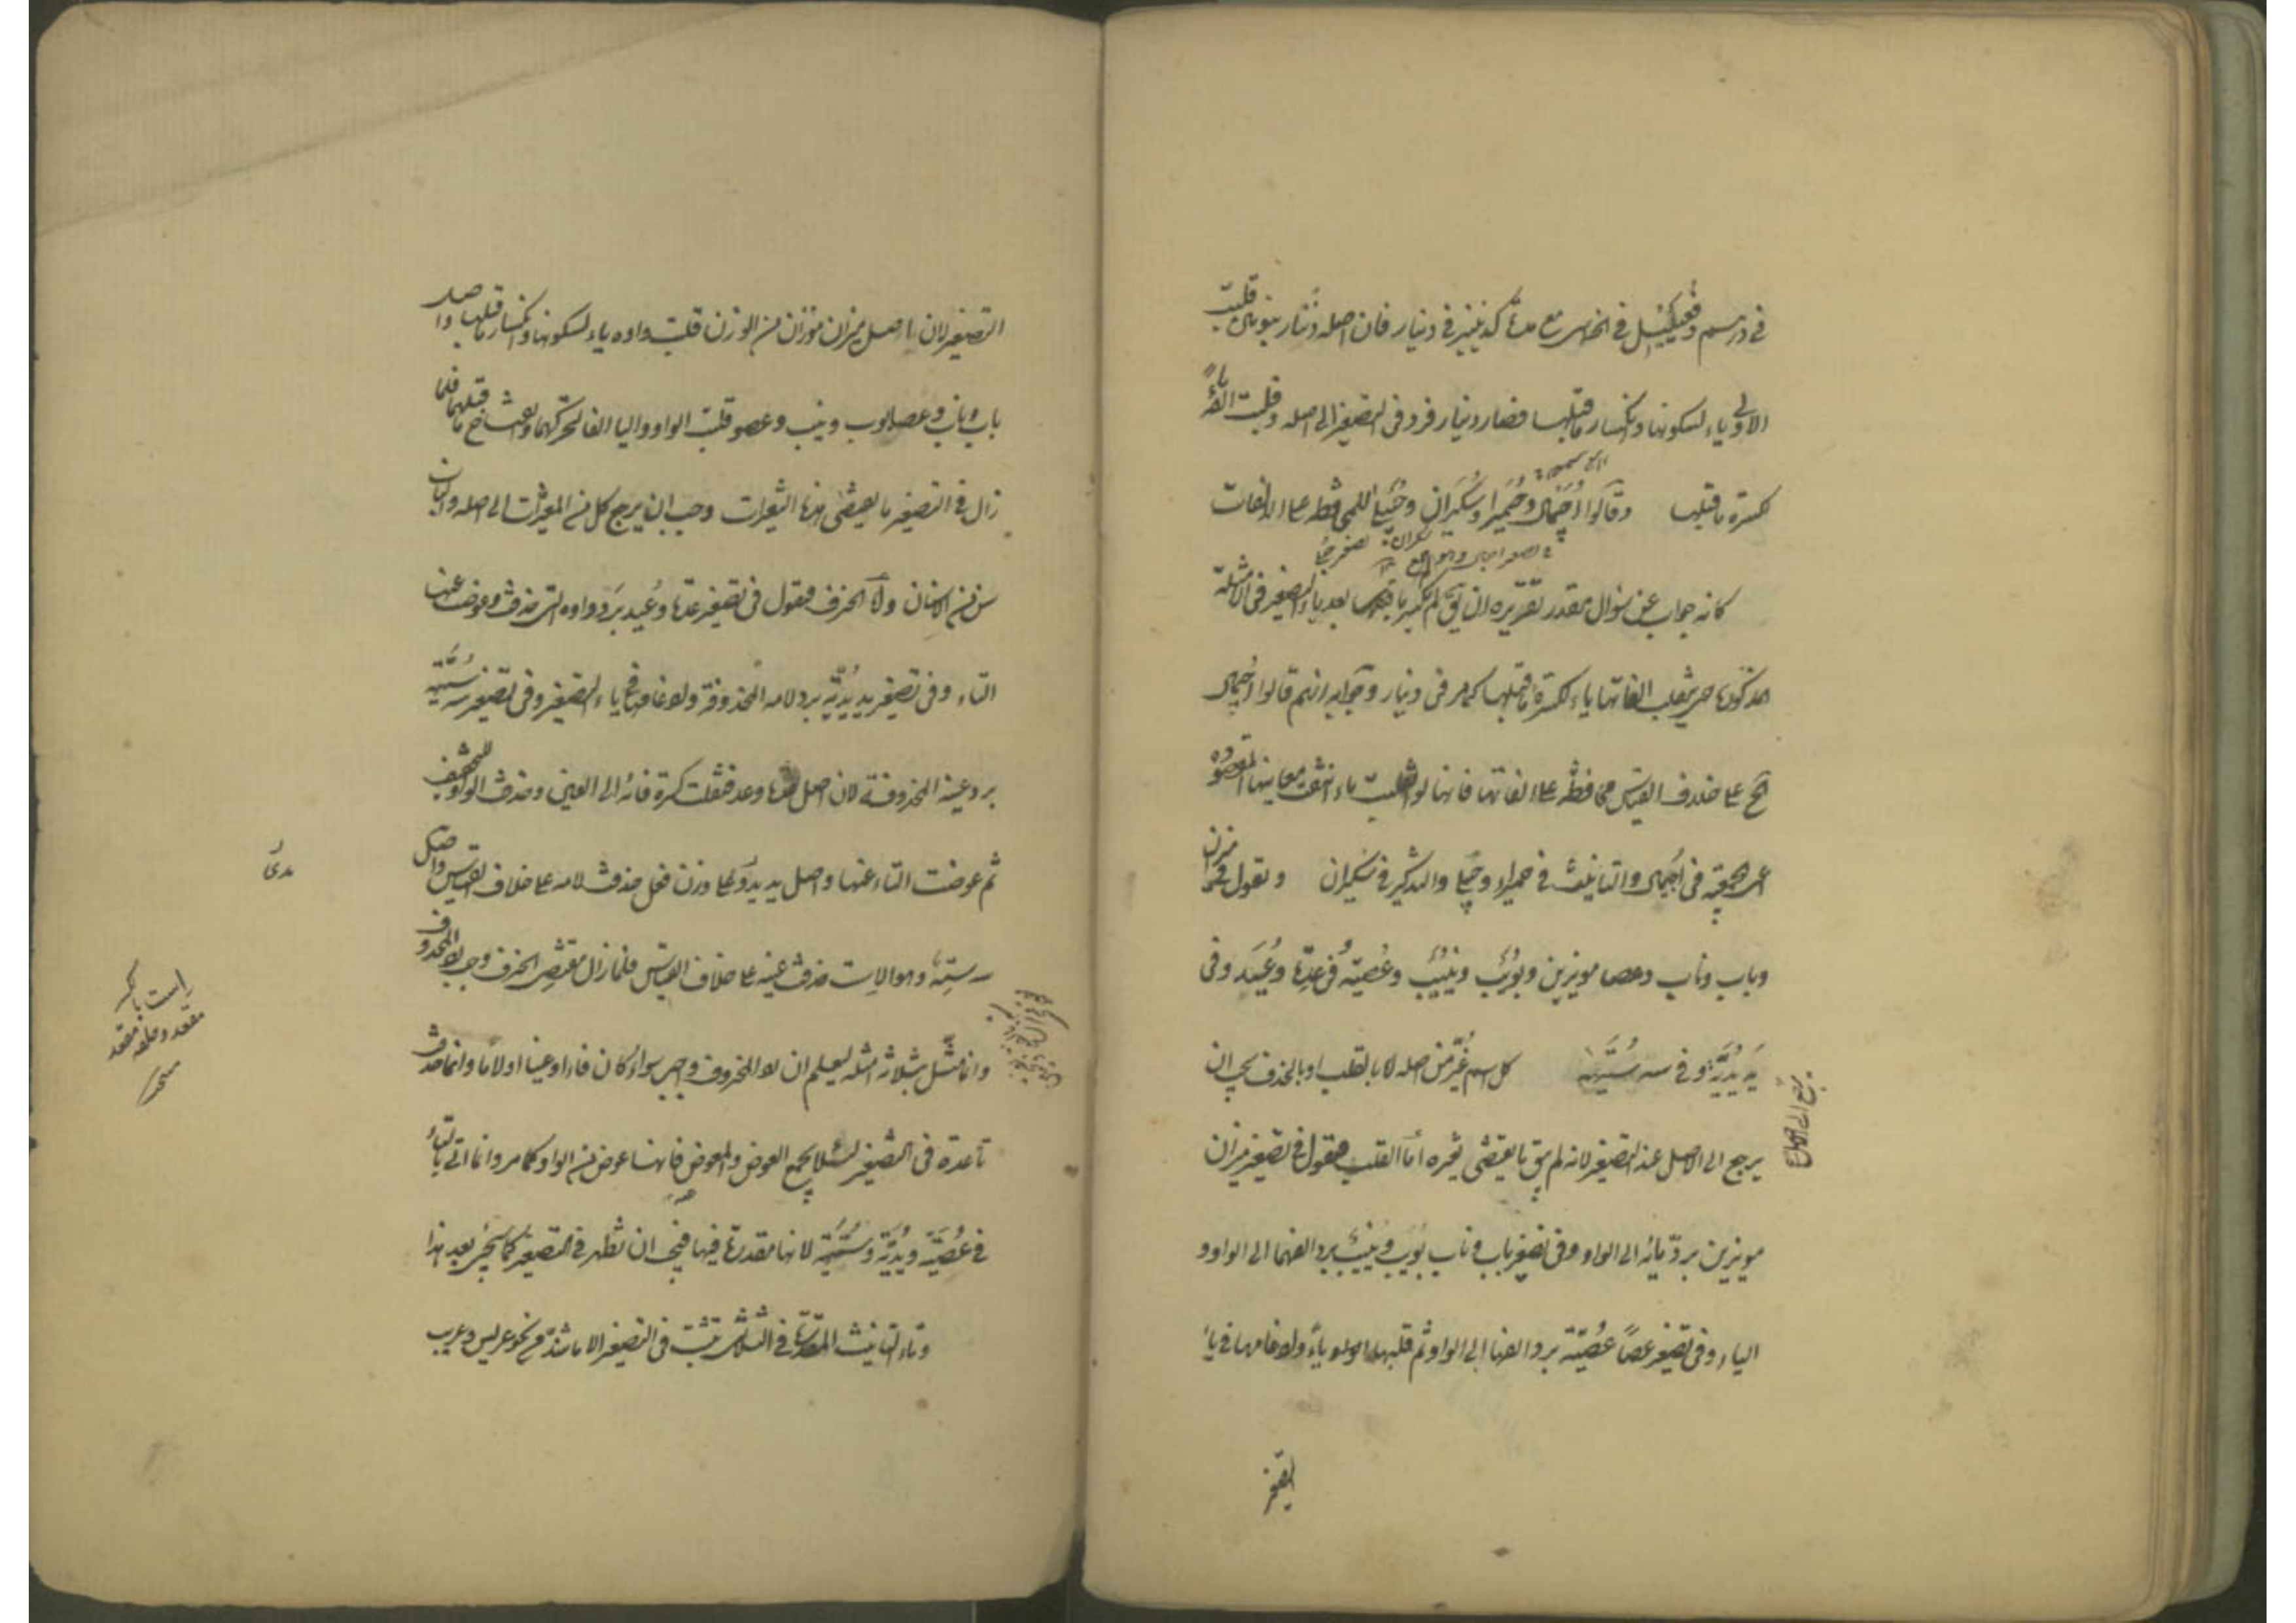 في درهم وفعيعيل في الخماسي مع مدة كدنينير في دينار فان اصله دنّار بنونين قلبت
الاولى ياء لسكونها وانكسار ما قبلها فصار دينار فرد في التصغير الى اصله وقلبت الفه ياءً
لكسرة ما قبلها وقالوا اُجَيمال وحُمَيراء وسُكَيران وحُبَيلى للمحافظة على الالفات
كانه جواب عن سؤال مقدر تقريره ان يق لم لم يكسر ما بعد ياء التصغير في الامثلة
المذكورة حتى تقلب الفاتها ياء لكسرة ما قبلها كما مر في دينار وجوابه انهم قالوا اُجيمال
الخ على خلاف القياس محافظة على الفاتها فانها لو انقلبت ياء انتفت معانيها المقصودة
اعني الجمعية في اُجيمال والتانيث في حميراء وحبيلى والتذكير في سكيران وتقول في ميزان
وباب وناب وعصا مويزين وبُوَيب ونُيَيب وعُصَيّة وفي عدة وُعَيدة وفي
يد يُدَيّة وفي سه سُتَيهة كل اسم غُيّر من اصله لا بالقلب او بالحذف يجب ان
يرجع الى الاصل عند التصغير لانه لم يبق ما يقتضي تغيره اما القلب فتقول في تصغير ميزان
مويزين بردّ يائه الى الواو وفي تصغير باب وناب بُوَيب ونُيَيب برد الفهما الى الواو و
الياء وفي تصغير عصاً عُصَيّة برد الفها الى الواو ثم قلبها ياءً وادغامها في ياء
التصغير
يرجع الى الاصل
التصغير لان اصل ميزان موزان من الوزن قلبت واوه ياء لسكونها وانكسار ما قبلها واصل
باب وناب وعصا بوب ونيب وعصو قلبت الواو والياء الفا لتحركهما وانفتاح ما قبلهما فلما
زال في التصغير ما يقتضي هذه التغيرات وجب ان يرجع كل من المغيرات الى اصله
ولما الحذف فتقول في تصغير عدة وُعَيدة برد واوه التي حذفت وعوضت عنها
التاء وفي تصغير يد يُدَيّة برد لامه المحذوفة وادغامها في ياء التصغير وفي تصغير سه سُتَيهة
برد عينه المحذوفة لان اصل عدة وعد فنقلت كسرة فائه الى العين وحذفت الواو للتخفيف
ثم عوضت التاء عنها واصل يد يدو على وزن فعل حذفت لامه على خلاف القياس واصل
سه سته وهو الاست حذفت عينه على خلاف القياس فلما زال مقتضى الحذف وجب رد المحذوف
وانما مثّل بثلاثة امثلة ليعلم ان رد المحذوف واجب سواء كان فاء او عينا او لاما وانما حذف
تاء عدة في التصغير لئلا يجمع العوض والمعوض فانها عوض من الواو كما مر وانما اتى بالتاء
في عُصَيّة ويُدَيّة وسُتَيهة لانها مقدرة فيها فيجب ان تظهر في التصغير كما سيجيء بعد هذا
وتاء التانيث المقدرة في الثلاثي تثبت في التصغير الا ما شذ من نحو عريس وعريب